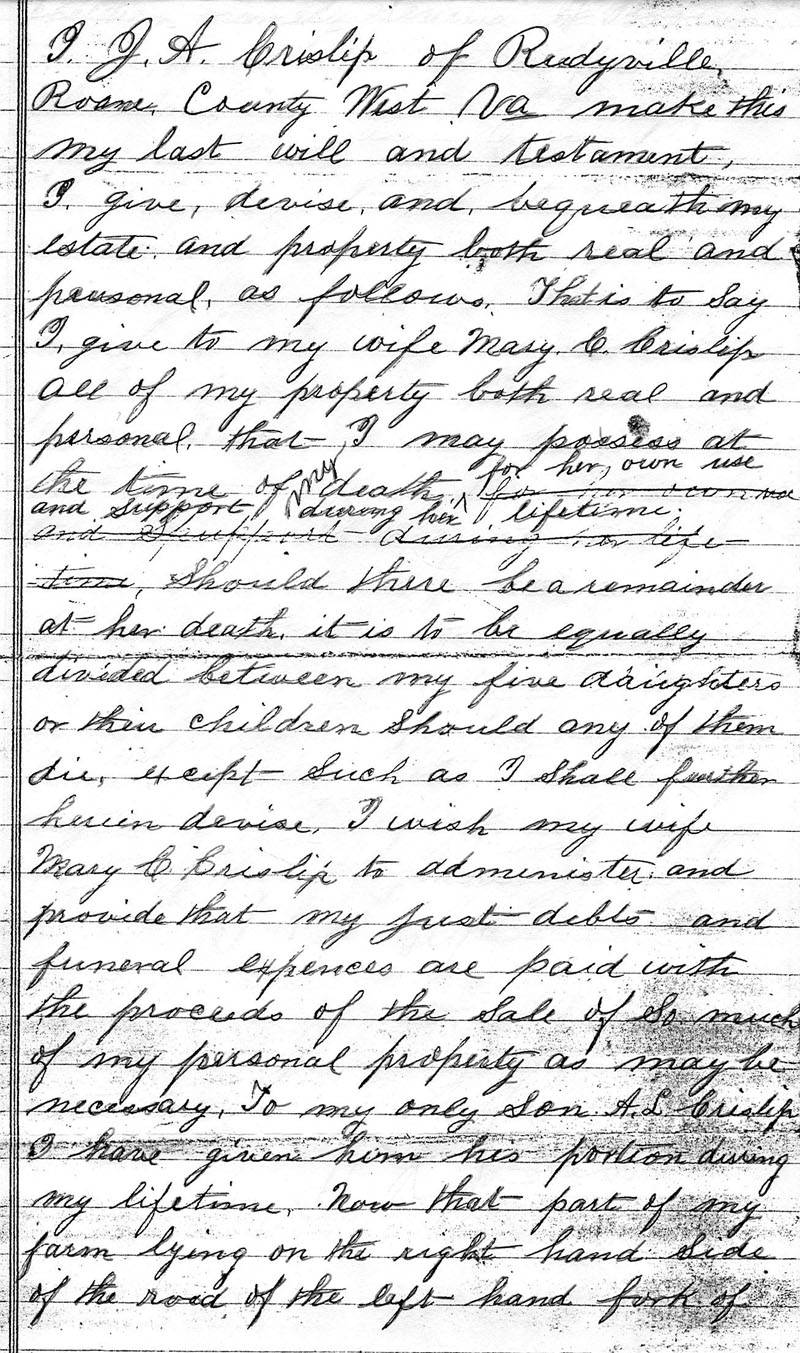 I. J. A. Crislip of Reedyville,
Roane, County West Va make this
my last will and testament,
I. give, devise, and, bequeath my
estate. and property both real and
personal, as follows. That is to Say
I, give to my wife Mary. C. Crislip
all of my property both real and
personal, that I may possess at
for her, own use
the time of my death for her own use
and support during her lifetime.
and Support during her life-
time, Should there be a remainder
at her death, it is to be equally
divided between my five daughters
or their children should any of them
die, except such as I shall further
herein devise, I wish my wife
Mary C Crislip to administer and
provide that my just debts and
funeral expences are paid with
the proceeds of the sale of So much
of my personal property as may be
necessary, To my only Son A. L Crislip
I have given him his portion during
my lifetime, Now that part of my
farm lying on the right hand Side
of the road of the left hand fork of